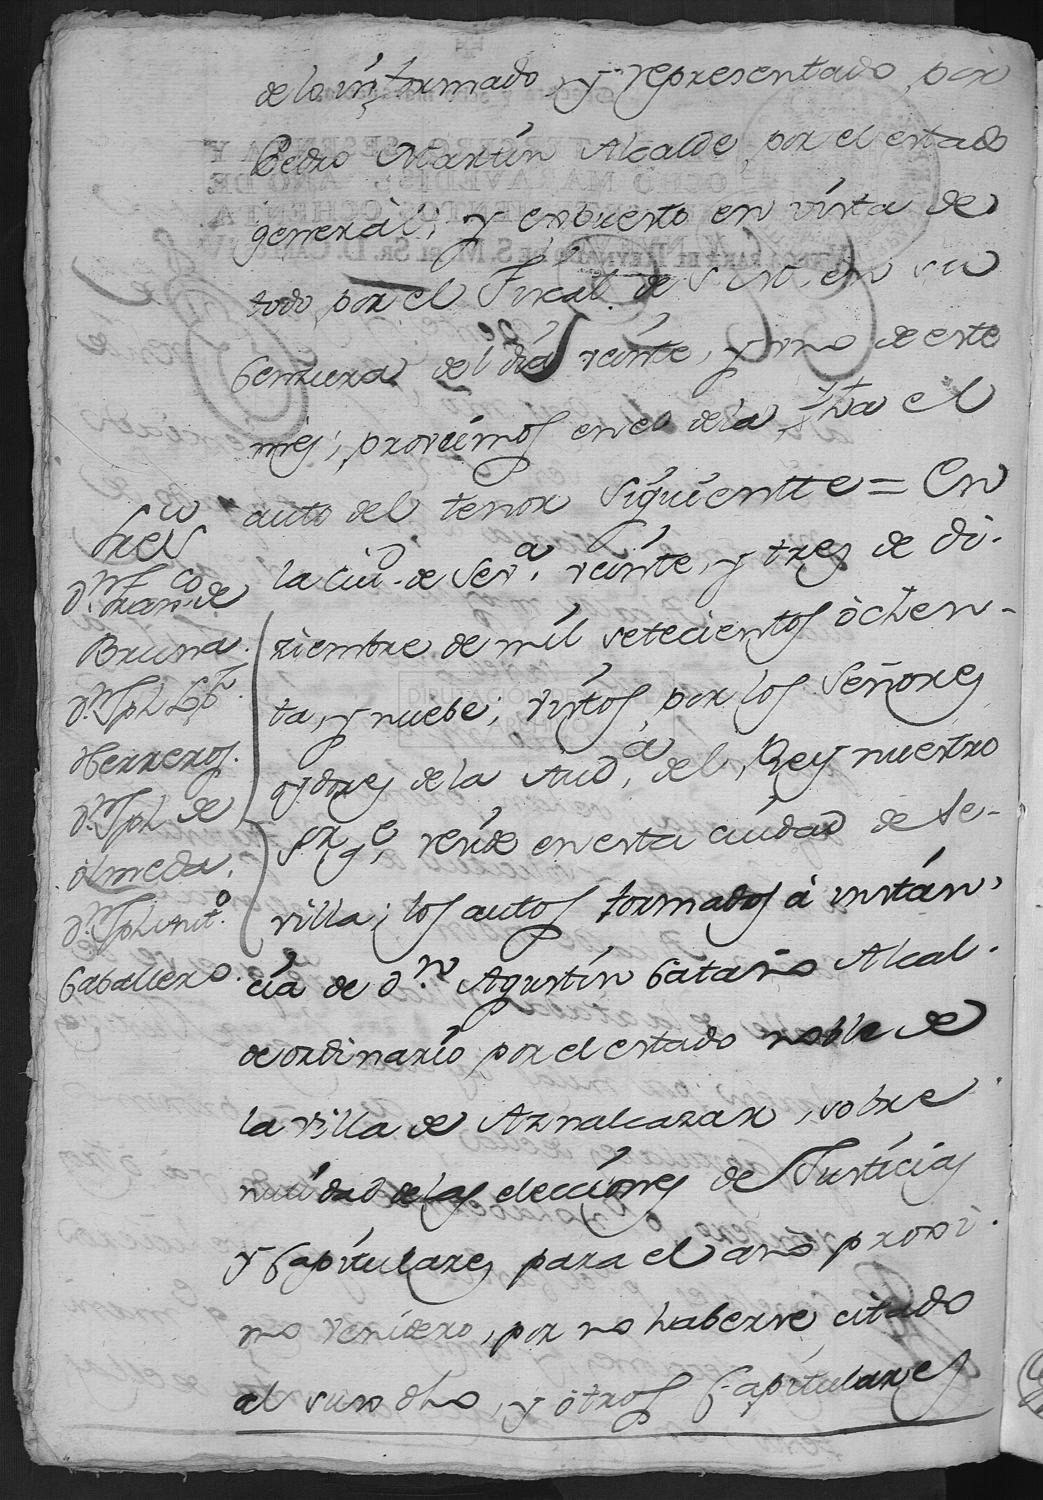 de lo informado, y representado por
Pedro Martín Alcalde por el estado
general; y expuesto en vista de
todo por el Fiscal de S. M. en su
Censura del día veinte, y uno de este
mes, proveimos en el de la fha el
auto del tenor siguientte = En
la ciud. de Sev.ª veinte, y tres de di-
ziembre de mil setecientos ochen-
ta, y nuebe; vistos por los Señores
oydores de la Aud.ª del Rey nuestro
Sr. q.e reside en esta ciudad de Se-
villa; los autos formados á instán-
cia de d.n Agustín Cataño Alcal-
de ordinario por el estado noble de
la villa de Aznalcazar, sobre
nulidad de las elecciones de Justicias
y Capitulares para el año proxi-
mo venidero, por no haberse citado
al suso dho, y otros Capitulares
Sres
D.n Fran.co de
Bruna.
D.n Jph
Herreros.
D.n Jph de
olmeda.
D.n Jph Ant.o
Caballero.